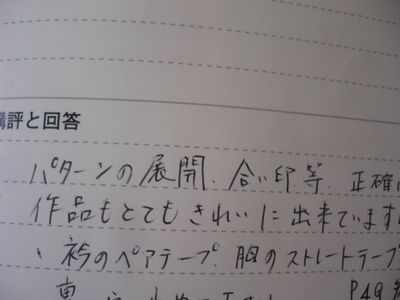 講評と回答
パターンの展開、合い印等、正確に
作品もとてもきれいに出来ています
、衿のペアテープ、胸のストレートテープ
P49